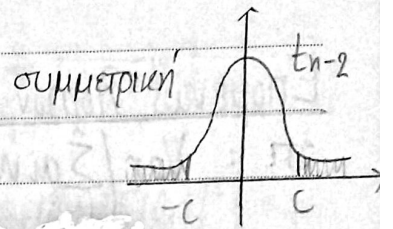 συμμετρική
tn-2
-c
c